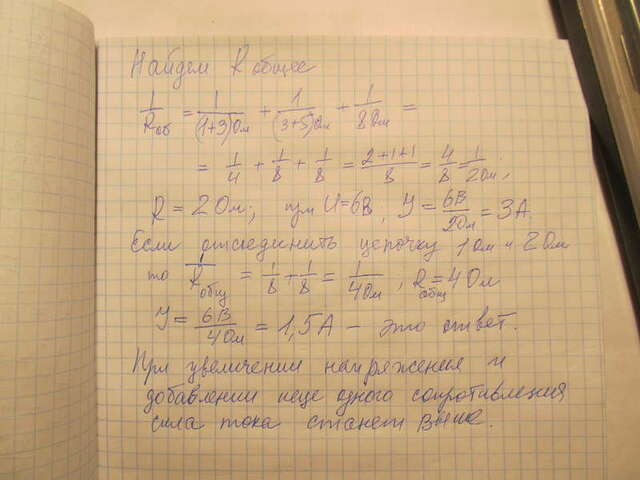 Найдем R общее
1/Rоб = 1/(1+3)Ом + 1/(3+5)Ом + 1/8 Ом =
= 1/4 + 1/8 + 1/8 = 2+1+1/8 = 4/8 = 1/2 Ом;
R = 2 Ом; при U=6В; У = 6В/2Ом = 3А.
Если отсоединить цепочку 1 Ом и 2 Ом
то 1/Rобщ = 1/8 + 1/8 = 1/4 Ом, Rобщ = 4 Ом
У = 6В/4Ом = 1,5 А – это ответ.
При увеличении напряжения и
добавлении еще одного сопротивления
сила тока станет выше.